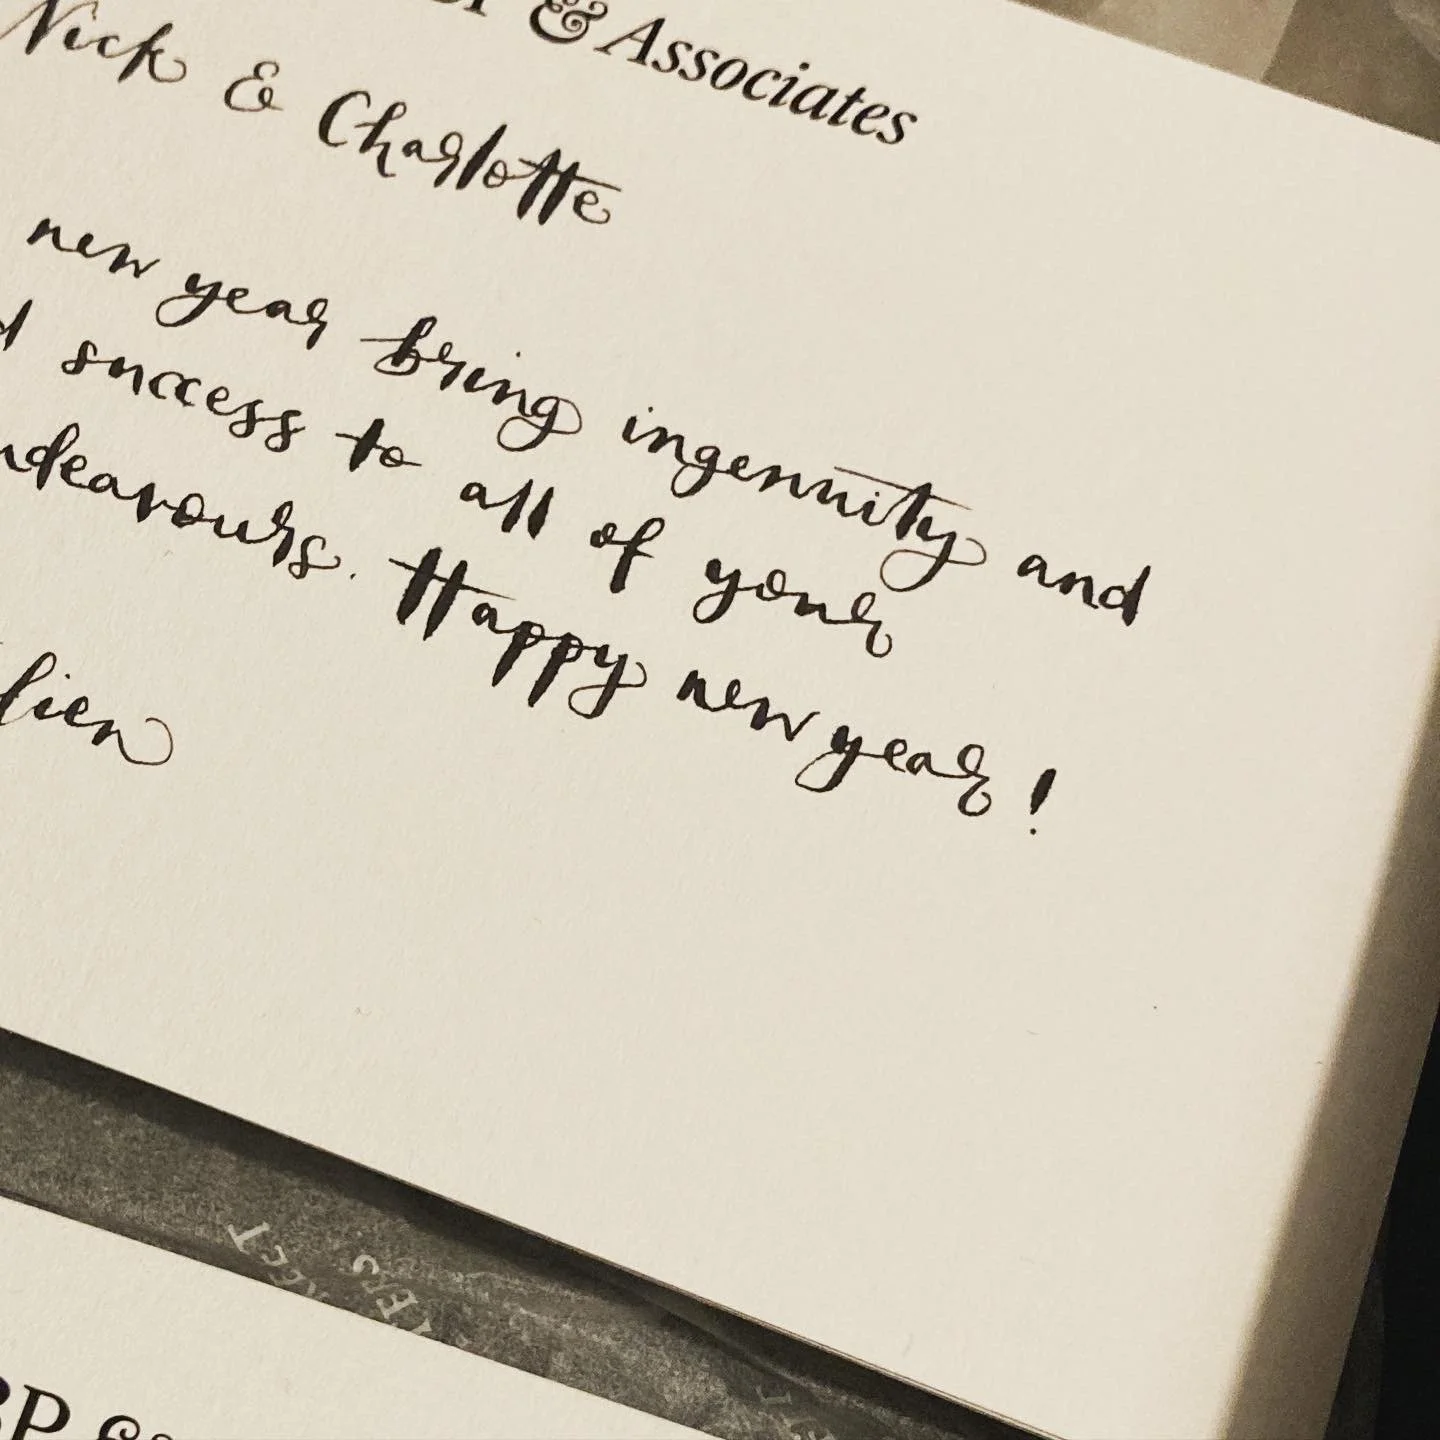 & Associates
Nick & Charlotte
new year bring ingenuity and
success to all of your
ndeavours. Happy new year!
lien
BP &